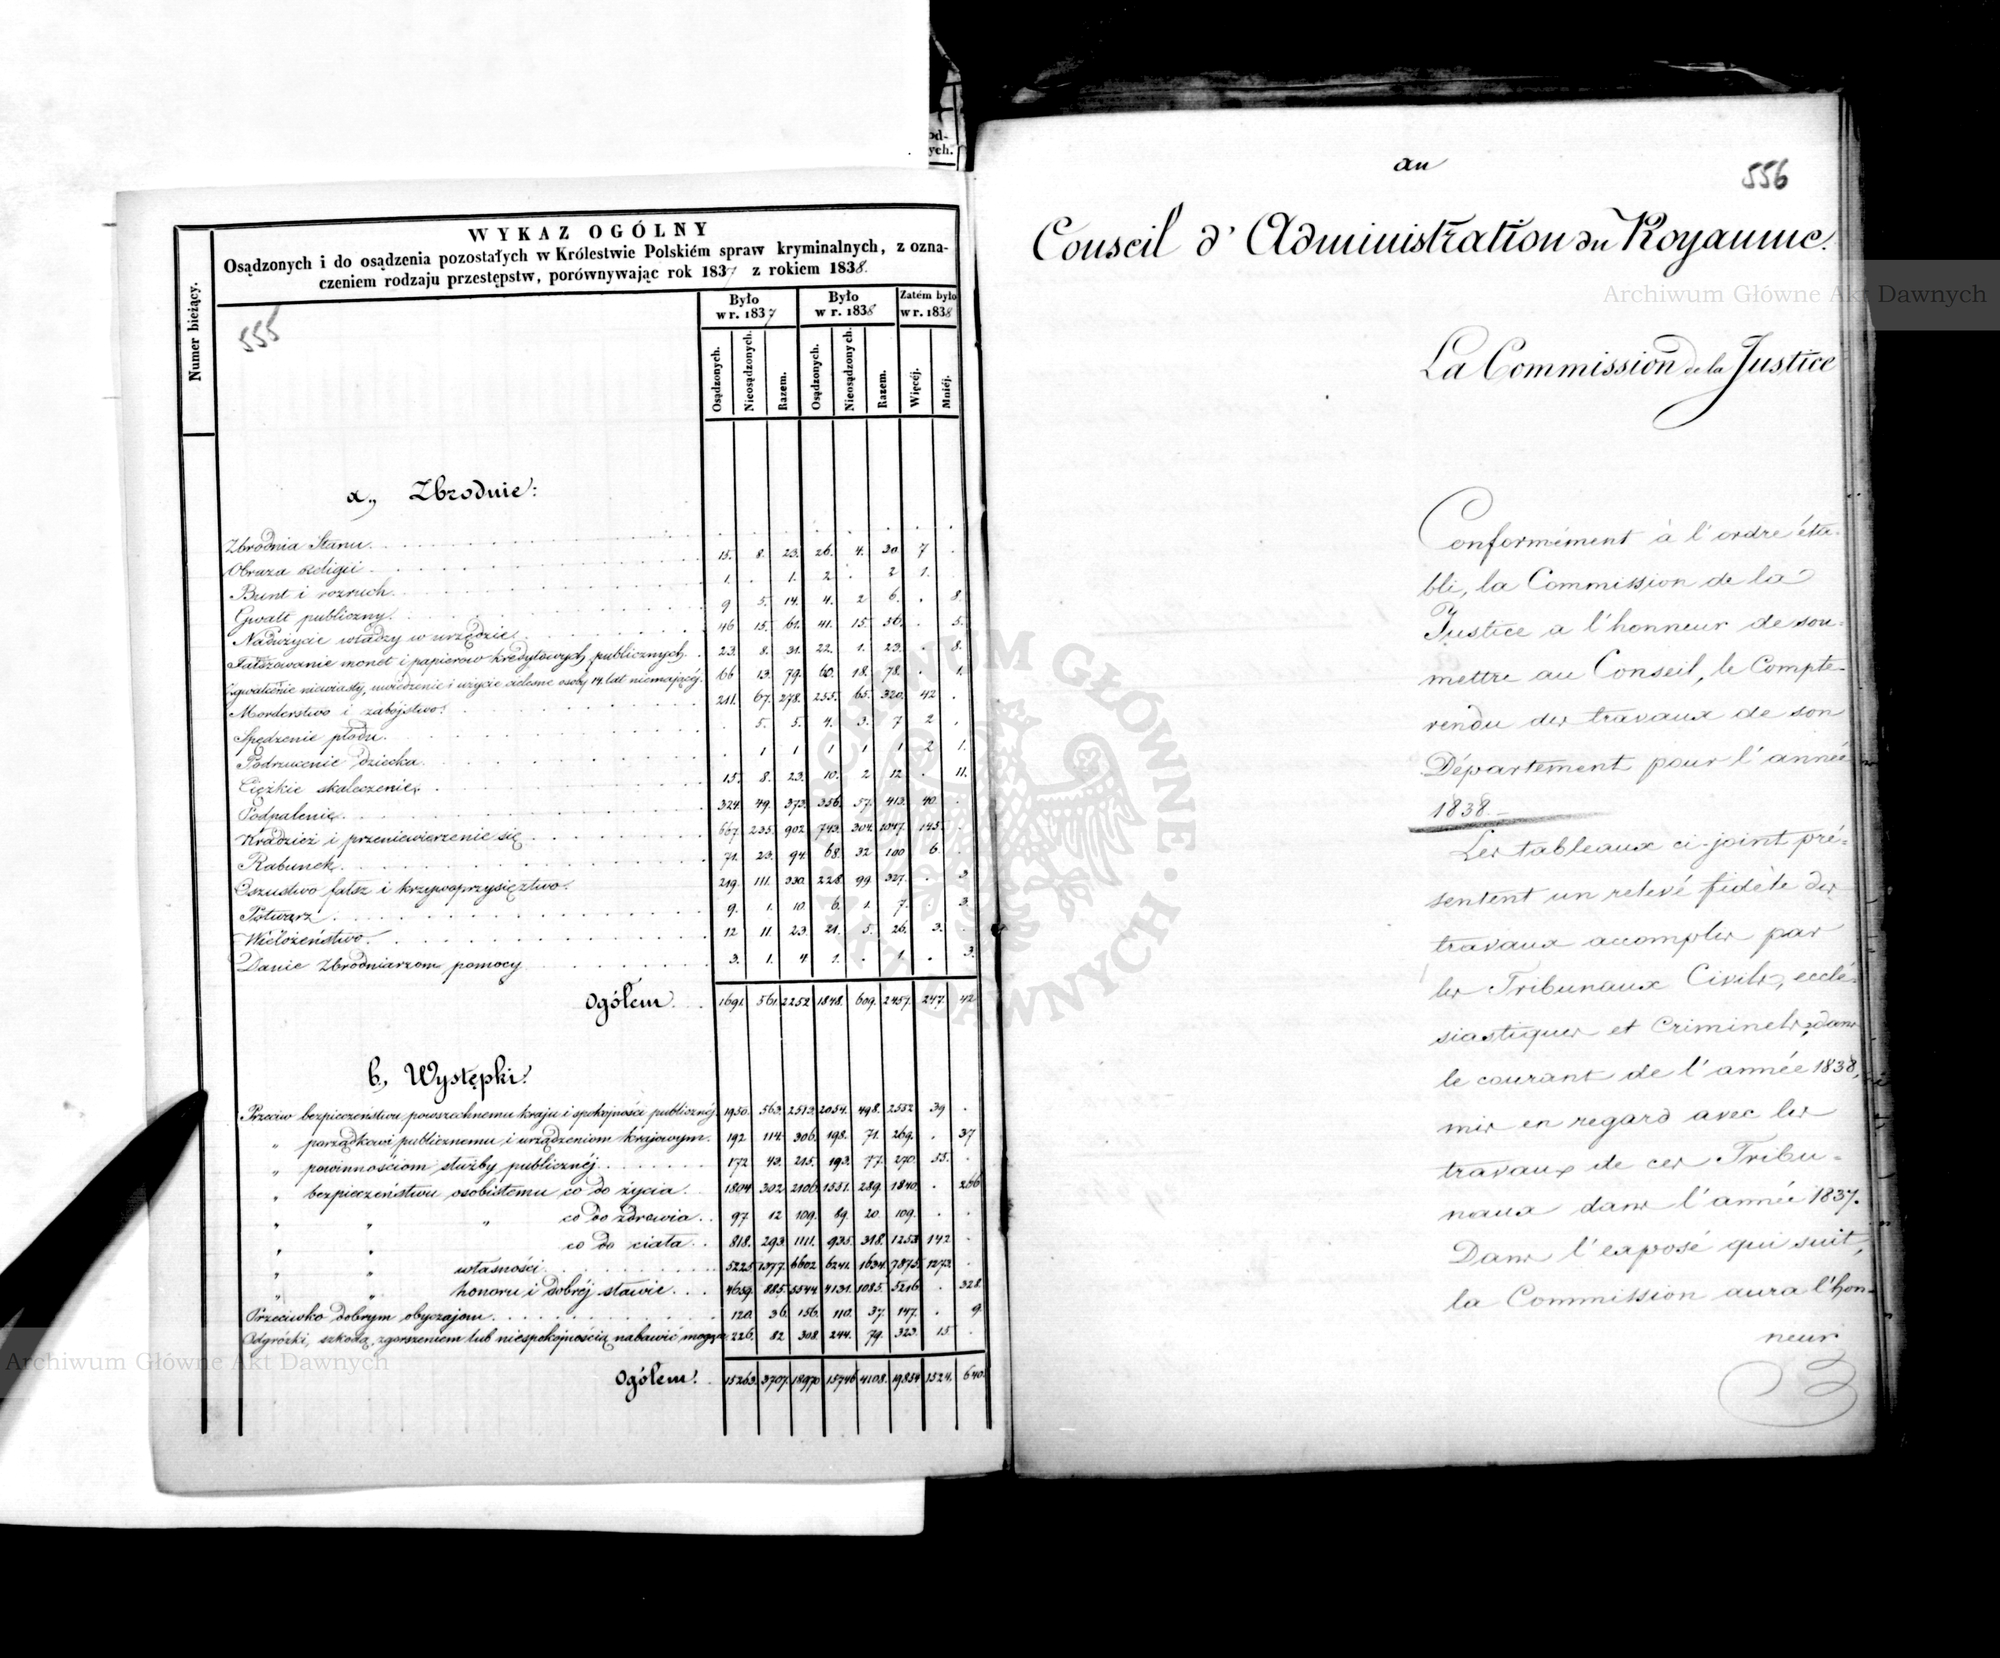 WYKAZ OGÓLNY
Osądzonych i do osądzenia pozostałych w Królestwie Polskiém spraw kryminalnych, z ozna-
czeniem rodzaju przestępstw, porównywając rok 1837 z rokiem 1838.
Numer bieżący.
555
Było w r. 1837 Było w r. 1838 Zatém było w r. 1838
Osądzonych. Nieosądzonych. Razem. Osądzonych. Nieosądzonych. Razem. Więcéj. Mniéj.
a,, Zbrodnie:
Zbrodnia Stanu . . . . . . . .
Obraza Religii 15. 8. 23. 26. 4. 30. 7 .
Bunt i rozruch 1. . 1. 2 . 2 1. .
Gwałt publiczny 9 5. 14. 4. 2 6. . 8.
Nadużycie władzy w urzędzie 46 15. 61. 41. 15. 56. . 5.
Fałszowanie monet i papierow kredytowych publicznych 23. 8. 31. 22. 1. 23. . 8.
Zgwałcenie niewiasty, uwiedzenie i użycie cielesne osoby 14 lat niemającéj. 66 13. 79. 60. 18. 78. . 1.
Morderstwo i zabójstwo. 211. 67. 278. 255. 65. 320. 42 .
Spędzenie płodu. . 5. 5. 4. 3. 7 2 .
Podrzucenie dziecka . 1 1 1 1 1 2 1.
Ciężkie skaleczenie 15. 8. 23. 10. 2 12. . 11.
Podpalenie. 324. 49. 373. 356. 57. 413. 40. .
Kradzież i przeniewierzenie się 667. 235. 902. 743. 304. 1047. 145. .
Rabunek. 71. 23. 94. 68. 32 100 6. .
Oszustwo fałsz i krzywoprzysięztwo. 219. 111. 330. 228. 99. 327. . 3
Potwarz 9. 1. 10 6. 1. 7. . 3.
Wielożeństwo. 12 11. 23. 21. 5. 26. 3. .
Danie Zbrodniarzom pomocy 3. 1. 4 1. . 1. . 3.
Ogółem 1691. 561. 2252 1848. 609. 2457. 247. 42
b,, Występki:
Przeciw bezpieczeństwu powszechnemu kraju i spokojności publicznéj. 1950. 563. 2513. 2054. 498. 2552 39 .
„ porządkowi publicznemu i urządzeniom krajowym. 192 114. 306. 198. 71. 269. . 37
„ powinnościom służby publicznéj 172 43. 215. 193. 77. 270. 55. .
„ bezpieczeństwu osobistemu co do życia 1804. 302. 2106. 1551. 289. 1840. . 266
„ „ „ co do zdrowia 97 12 109. 89. 20. 109. . .
„ „ co do ciała 818. 293. 1111. 935. 318. 1253. 142 .
„ „ własności 5225. 1377. 6602 6241. 1634. 7875. 1273. .
„ „ honoru i dobréj sławie 4659. 885. 5544. 4131. 1085. 5216. . 328.
Przeciwko dobrym obyczajom 120. 36. 156. 110. 37. 147. . 9
Odgróżki, szkodą, zgorszeniem lub niespokojnością nabawić mogące 226. 82 308. 244. 79. 323. 15. .
Ogółem. 15263. 3707. 18970 15746 4108. 19854 1524. 640
556
au
Conseil d'Administration du Royaume.
La Commission de la Justice
Conformément à l'ordre éta-
bli, la Commission de la
Justice a l'honneur de sou-
mettre au Conseil, le Compte-
rendu des travaux de son
Département pour l'année
1838.
Les tableaux ci-joint pré-
sentent un relevé fidèle des
travaux accomplis par
les Tribunaux Civils, ecclé-
siastiques et Criminels, dans
le courant de l'année 1838,
mis en regard avec les
travaux de ces Tribu-
naux dans l'année 1837.
Dans l'exposé qui suit,
la Commission aura l'hon-
neur
Archiwum Główne Akt Dawnych
Archiwum Główne Akt Dawnych
ARCHIWUM GŁÓWNE AKT DAWNYCH